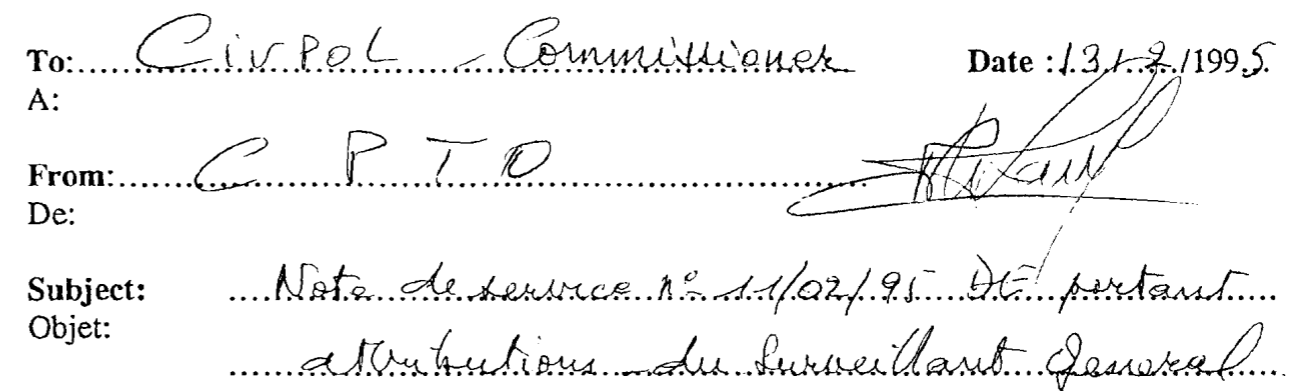 To: CivPol - Commissioner Date : 13/2/1995
A:
From: C P T O
De:
Subject: Note de service n° 11/02/95 DE portant
Objet:
attributions du Surveillant General